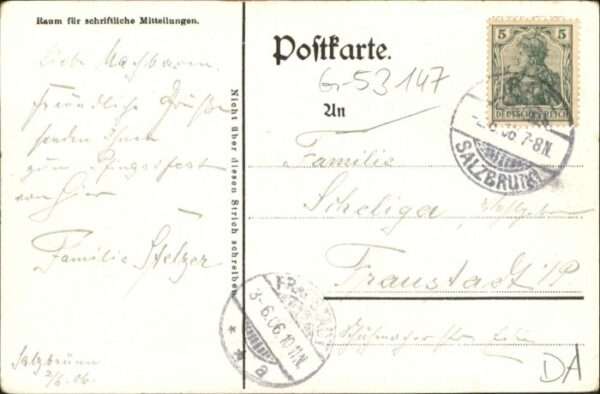 Raum für schriftliche Mitteilungen.
Liebe Nachbarn
Freundliche Grüße
senden Ihnen
zum Pfingstfest
von hier
Familie Stelzer
Salzbrunn
2/6. 06.
Nicht über diesen Strich schreiben
Postkarte.
G-53147
An
Familie
Scheliga
Fraustadt i/P
DA
5 5
DEUTSCHES REICH
6.06 7-8N
SALZBRUNN
FRAUSTADT
3.6.06.10-11N.
* * a